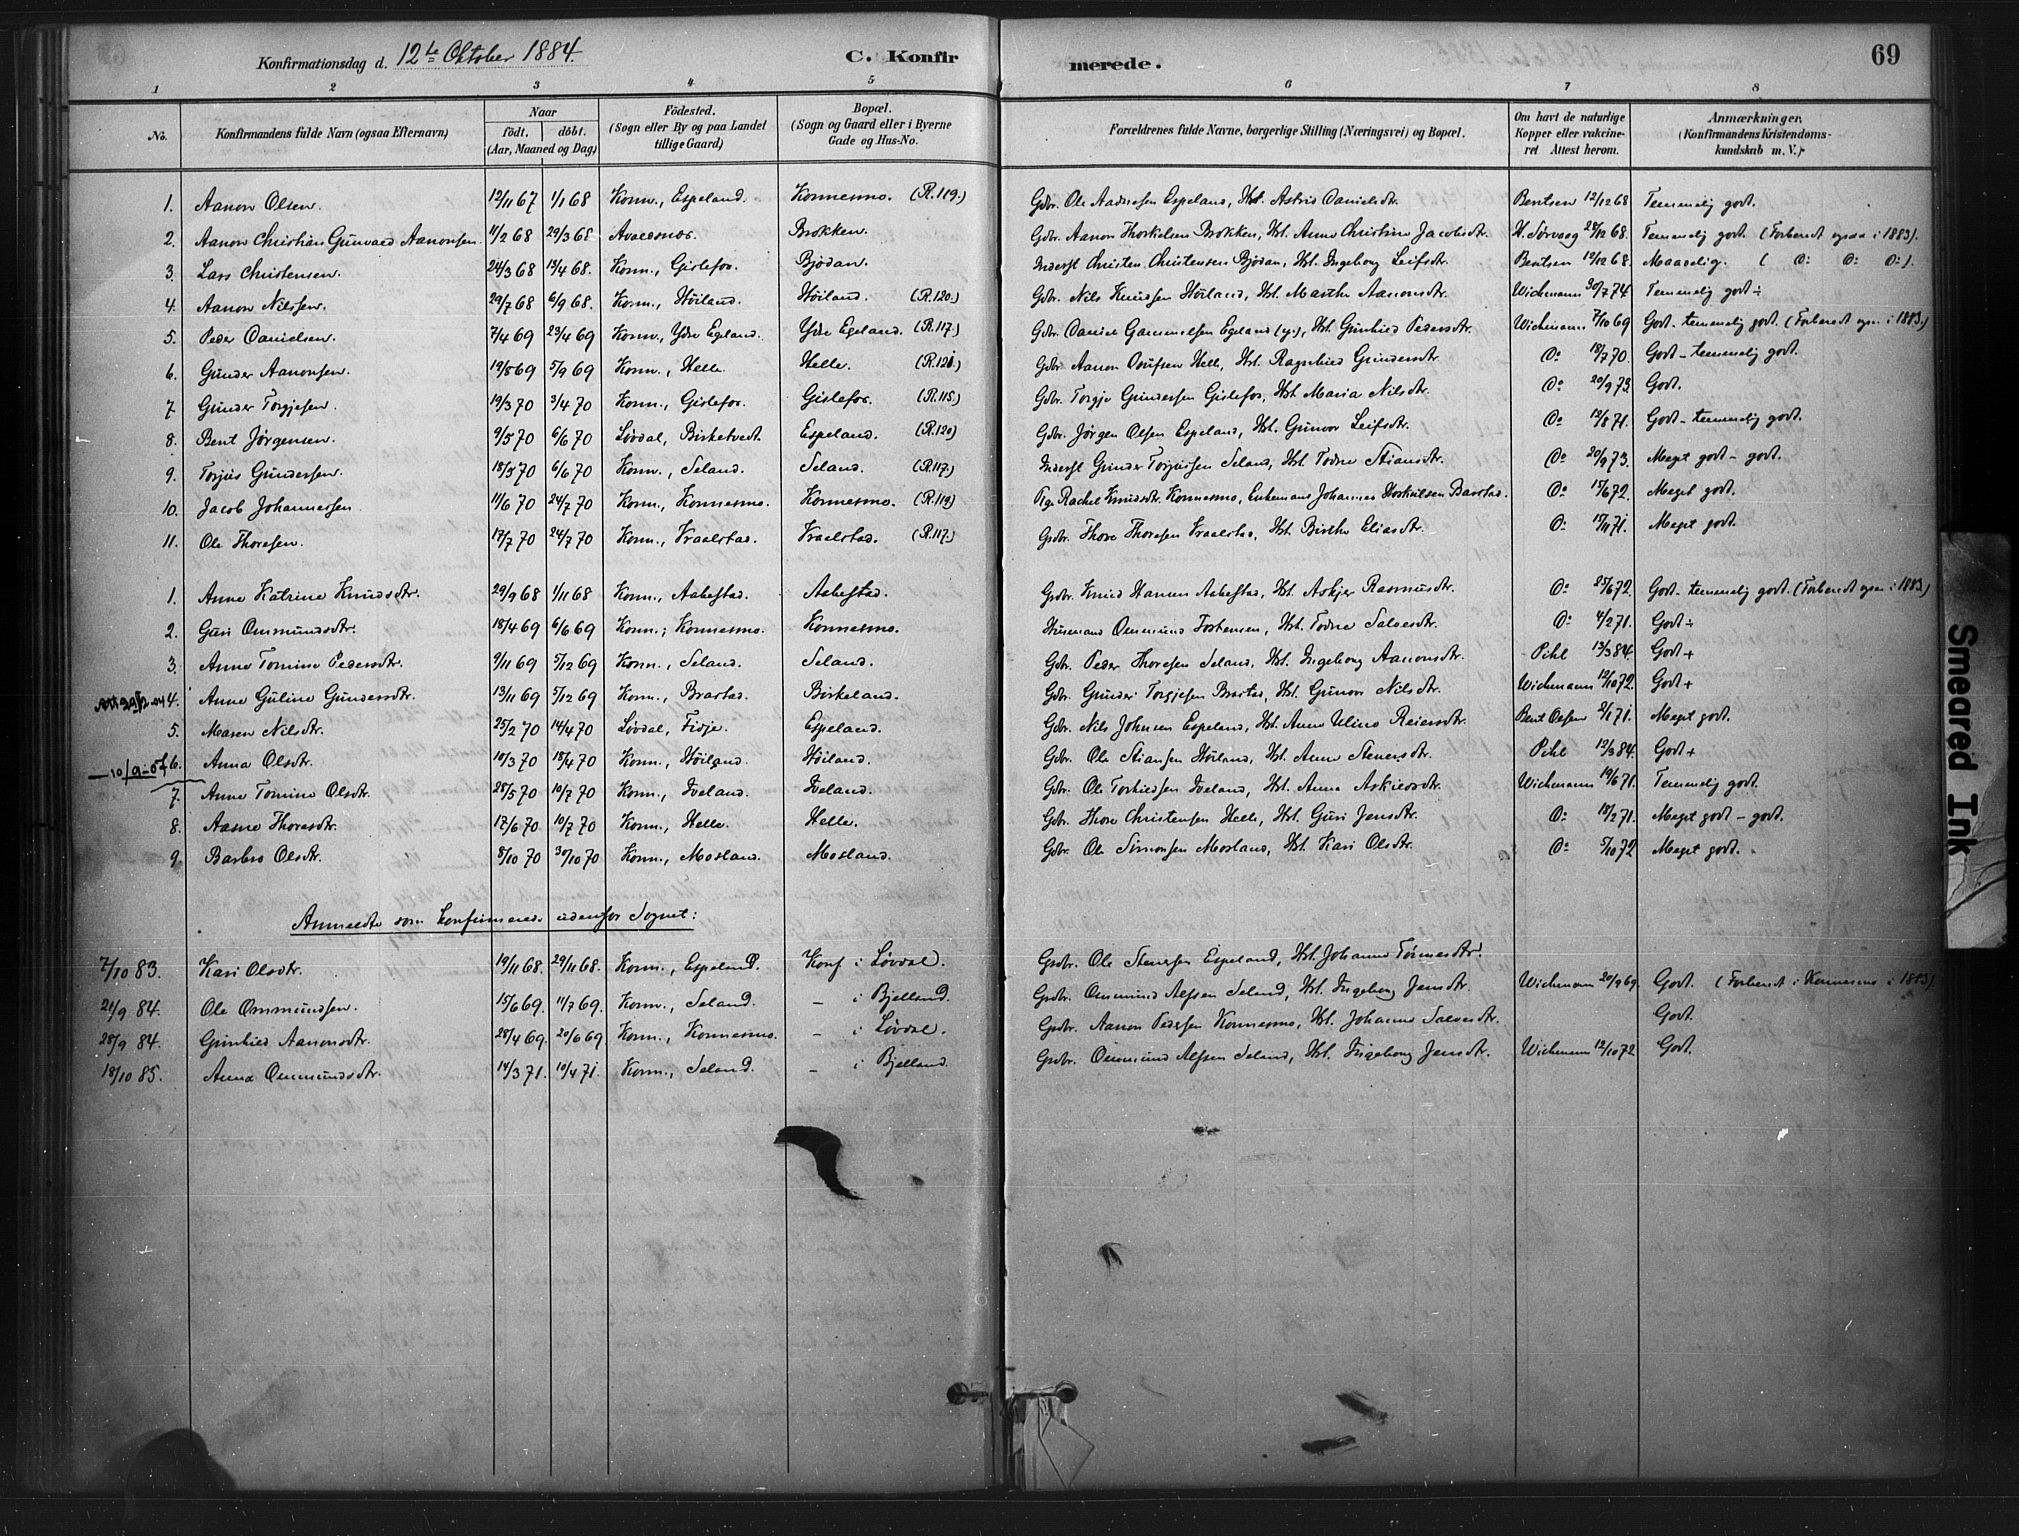 Konfirmationsdag d. 12te Oktober 1884. C. Konfirmerede. 69
1 2 3 4 5 6 7 8
No. Konfirmandens fulde Navn (ogsaa Efternavn) Naar født. døbt. (Aar, Maaned og Dag) Födested. (Sogn eller By og paa Landet tillige Gaard) Bopæl. (Sogn og Gaard eller i Byerne Gade og Hus-No. Forældrenes fulde Navne, borgerlige Stilling (Næringsvei) og Bopæl. Om havt de naturlige Kopper eller vakcineret Attest herom. Anmærkninger. (Konfirmandens Kristendomskundskab m. V.)
1. Aanon Olsen. 12/11 67 1/1 68 Konn., Espeland. Konnesmo. (R.119.) Gdbr. Ole Aadnesen Espeland, Hst. Astrid Danielsdtr. Bentsen 12/12 68 Temmelig godt.
2. Aanon Christian Gunvald Aanonsen. 11/2 68 29/3 68 Avaldsnes. Brokken. Gdbr. Aanon Thorkelsen Brokken, Hst. Anne Christine Jacobsdtr. H. Sørvaag 28/12 68. Temmelig godt. (Forberedt ogsaa i 1883).
3. Lars Christensen. 24/3 68 13/4 68. Konn., Gislefos. Bjødan. Inderst Christen Christensen Bjødan, Hst. Ingeborg Leifsdtr. Bentsen 12/12 68. Maadelig. ( Do Do Do ).
4. Aanon Nilssen. 29/7 68 6/9 68. Konn., Höiland. Höiland. (R.120.) Gdbr. Nils Knudsen Höiland, Hst. Marthe Aanonsdtr. Wichmann 30/7 74. Temmelig godt÷
5. Peder Danielsen. 7/4 69 23/4 69 Konn., Ydre Egeland. Ydre Egeland. (R.117.) Gdbr. Daniel Gammelsen Egeland (y.), Hst. Gunhild Pedersdtr. Wichmann 7/10 69 Godt-temmelig godt. (Forberedt ogs. i 1883.)
6. Gunder Aanonsen. 19/8 69 5/9 69 Konn., Helle. Helle. (R.121.) Gdbr. Aanon Omfsen Helle, Hst. Ragnhild Gundersdtr. Do 18/7 70. Godt-temmelig godt.
7. Gunder Torgjesen. 19/3 70 3/4 70 Konn., Gislefos. Gislefos. (R.115.) Gdbr. Torgje Gundersen Gislefos, Hst. Maria Nilsdtr. Do 20/9 73. Godt.
8. Bent Jörgensen. 9/5 70 6/6 70 Løvdal, Birketvedt. Espeland. (R.120) Gdbr. Jörgen Olsen Espeland, Hst. Gunvor Leifsdtr. Do 12/8 71. Godt-temmelig godt.
9. Torjus Gundersen. 18/5 70 6/6 70 Konn., Seland. Seland. (R.117.) Inderst Gunder Torjussen Seland, Hst. Todne Stiansdtr. Do 20/9 73. Meget godt-godt.
10. Jacob Johannessen. 11/6 70 24/7 70 Konn., Konnesmo. Konnesmo. (R.119) Pige Rachel Knudsdtr. Konnesmo, Enkemand Johannes Thorkelsen Barstad. Do 15/6 72. Meget godt.
11. Ole Thoresen. 17/7 70 24/7 70 Konn., Vraalstad. Vraalstad. (R.117.) Gdbr. Thore Thoresen Vraalstad, Hst. Birthe Eliasdtr. Do 15/11 71. Meget godt.
1. Anne Katrine Knudsdtr. 29/9 68 1/11 68 Konn., Aabestad. Aabestad. Gdbr. Knud Hansen Aabestad, Hst. Askjer Rasmusdtr. Do 25/6 72. Godt-temmelig godt. (Forberedt ogs. i 1883)
2. Guri Ommundsdtr. 18/4 69 6/6 69 Konn., Konnesmo. Konnesmo. Husmand Ommund Tostensen, Hst. Todne Salvesdtr. Do 4/2 71. Godt÷
3. Anne Tomine Pedersdtr. 9/11 69 5/12 69 Konn., Seland. Seland. Gdbr. Peder Thoresen Seland, Hst. Ingeborg Aanonsdtr. Pihl 13/3 84. Godt+
Att 29/2-04 4. Anne Guline Gundersdtr. 13/11 69 5/12 69 Konn., Brastad. Birkeland. Gdbr. Gunder Torgjesen Brastad, Hst. Gunvor Nilsdtr. Wichmann 12/10 72. Godt+
5. Maren Nilsdtr. 25/2 70 14/4 70 Løvdal, Fidje. Espeland. Gdbr. Nils Johnsen Espeland, Hst. Anne Uline Reiersdtr. Bent Olsen 2/1 71. Meget godt.
— 10/9-07 6. Anna Olsdtr. 10/3 70 18/4 70 Konn., Höiland. Höiland. Gdbr. Ole Stiansen Höiland, Hst. Anne Stenersdtr. Pihl 12/3 84. Godt+
7. Anne Tomine Olsdtr. 28/5 70 10/7 70 Konn., Iveland. Iveland. Gdbr. Ole Torkildsen Iveland, Hst. Anna Askildsdtr. Wichmann 19/6 71. Temmelig godt.
8. Aasne Thoresdtr. 17/6 70 10/7 70 Konn., Helle. Helle. Gdbr. Thore Christensen Helle, Hst. Guri Jensdtr. Do 18/2 71. Meget godt-godt.
9. Barbro Olsdtr. 8/10 70 30/10 70 Konn., Mosland. Mosland. Gdbr. Ole Simonsen Mosland, Hst. Kari Olsdtr. Do 5/10 72 Meget godt.
Anmeldte som konfirmerede udenfor Sognet:
7/10 83. Kari Olsdtr. 19/11 68. 29/11 68. Konn., Espeland. Konf i Løvdal. Gdbr. Ole Stenersen Espeland, Hst. Johanne Tørresdtr.
21/9 84. Ole Ommundsen. 15/6 69. 11/7 69. Konn., Seland. – i Bjelland. Gdbr. Ommund Alfsen Seland, Hst. Ingeborg Jensdtr. Wichmann 20/9 69. Godt. (Forberedt i Konnesmo i 1883).
28/9 84. Gunhild Aanonsdtr. 28/4 69. 20/6 69 Konn., Konnesmo. – i Løvdal. Gdbr. Aanon Pedersen Konnesmo, Hst. Johanne Salvesdtr. Godt.
18/10 85. Anna Ommundsdtr. 14/3 71. 10/4 71. Konn., Seland. – i Bjelland. Gdbr. Ommund Alfsen Seland, Hst. Ingeborg Jensdtr. Wichmann 12/10 72 Godt.
Smeared Ink